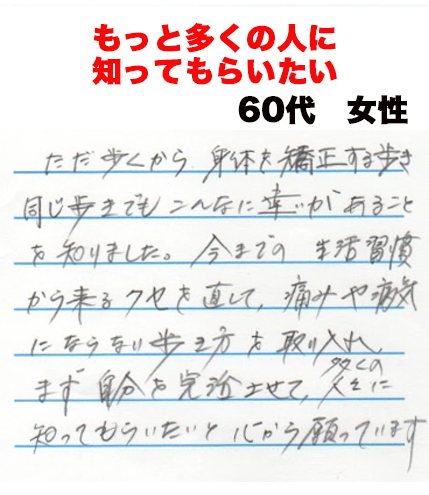 もっと多くの人に
知ってもらいたい
60代 女性
ただ歩くから、身体を矯正する歩き
同じ歩きでもこんなに違いがあること
を知りました。今までの生活習慣
から来るクセを直して、痛みや病気
にならない歩き方を取り入れ、
まず自分を完治させて、多くの人々に
知ってもらいたいと心から願っています